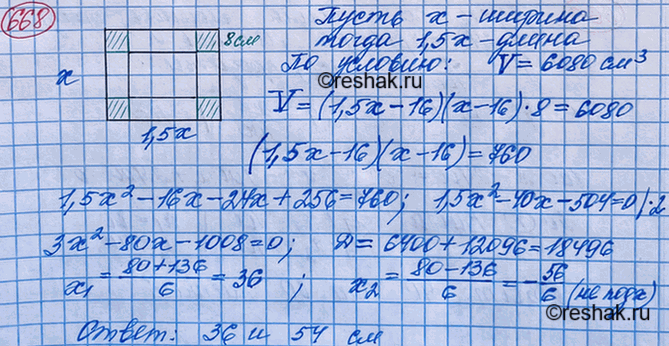 668
Пусть x – ширина
8см
тогда 1,5x – длина
x
По условию: V = 6080 см³
©reshak.ru
V = (1,5x – 16)(x – 16) · 8 = 6080
1,5x
(1,5x – 16)(x – 16) = 760
1,5x² – 16x – 24x + 256 = 760; 1,5x² – 40x – 504 = 0 | · 2
3x² – 80x – 1008 = 0; D = 6400 + 12096 = 18496
x₁ = (80 + 136)/6 = 36 ; x₂ = (80 – 136)/6 = –56/6 (не подх)
©reshak.ru
Ответ: 36 и 54 см